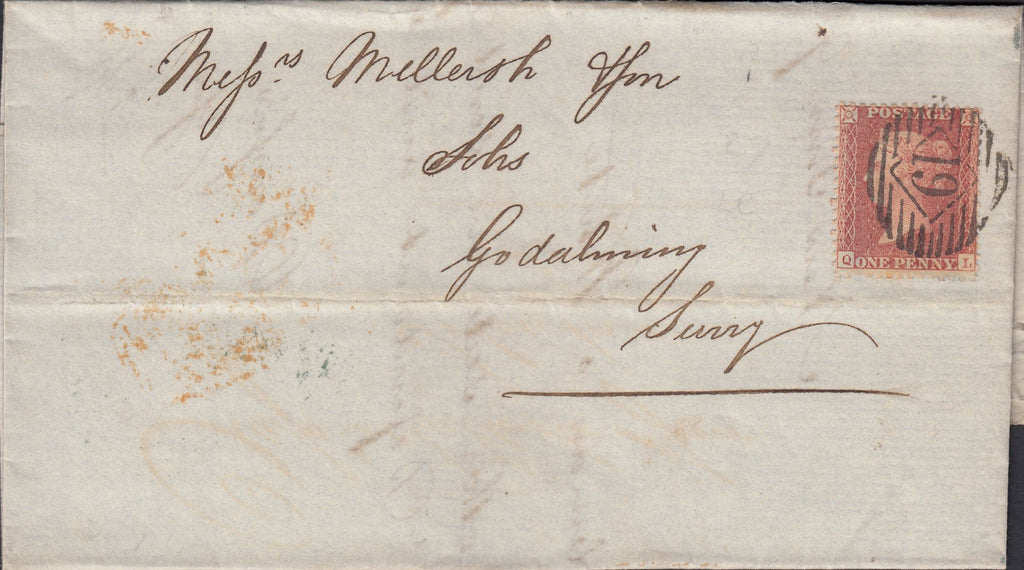 Messrs. Mellersh & Son
Solrs
Godalming
Surry
POSTAGE
19
Q ONE PENNY. L